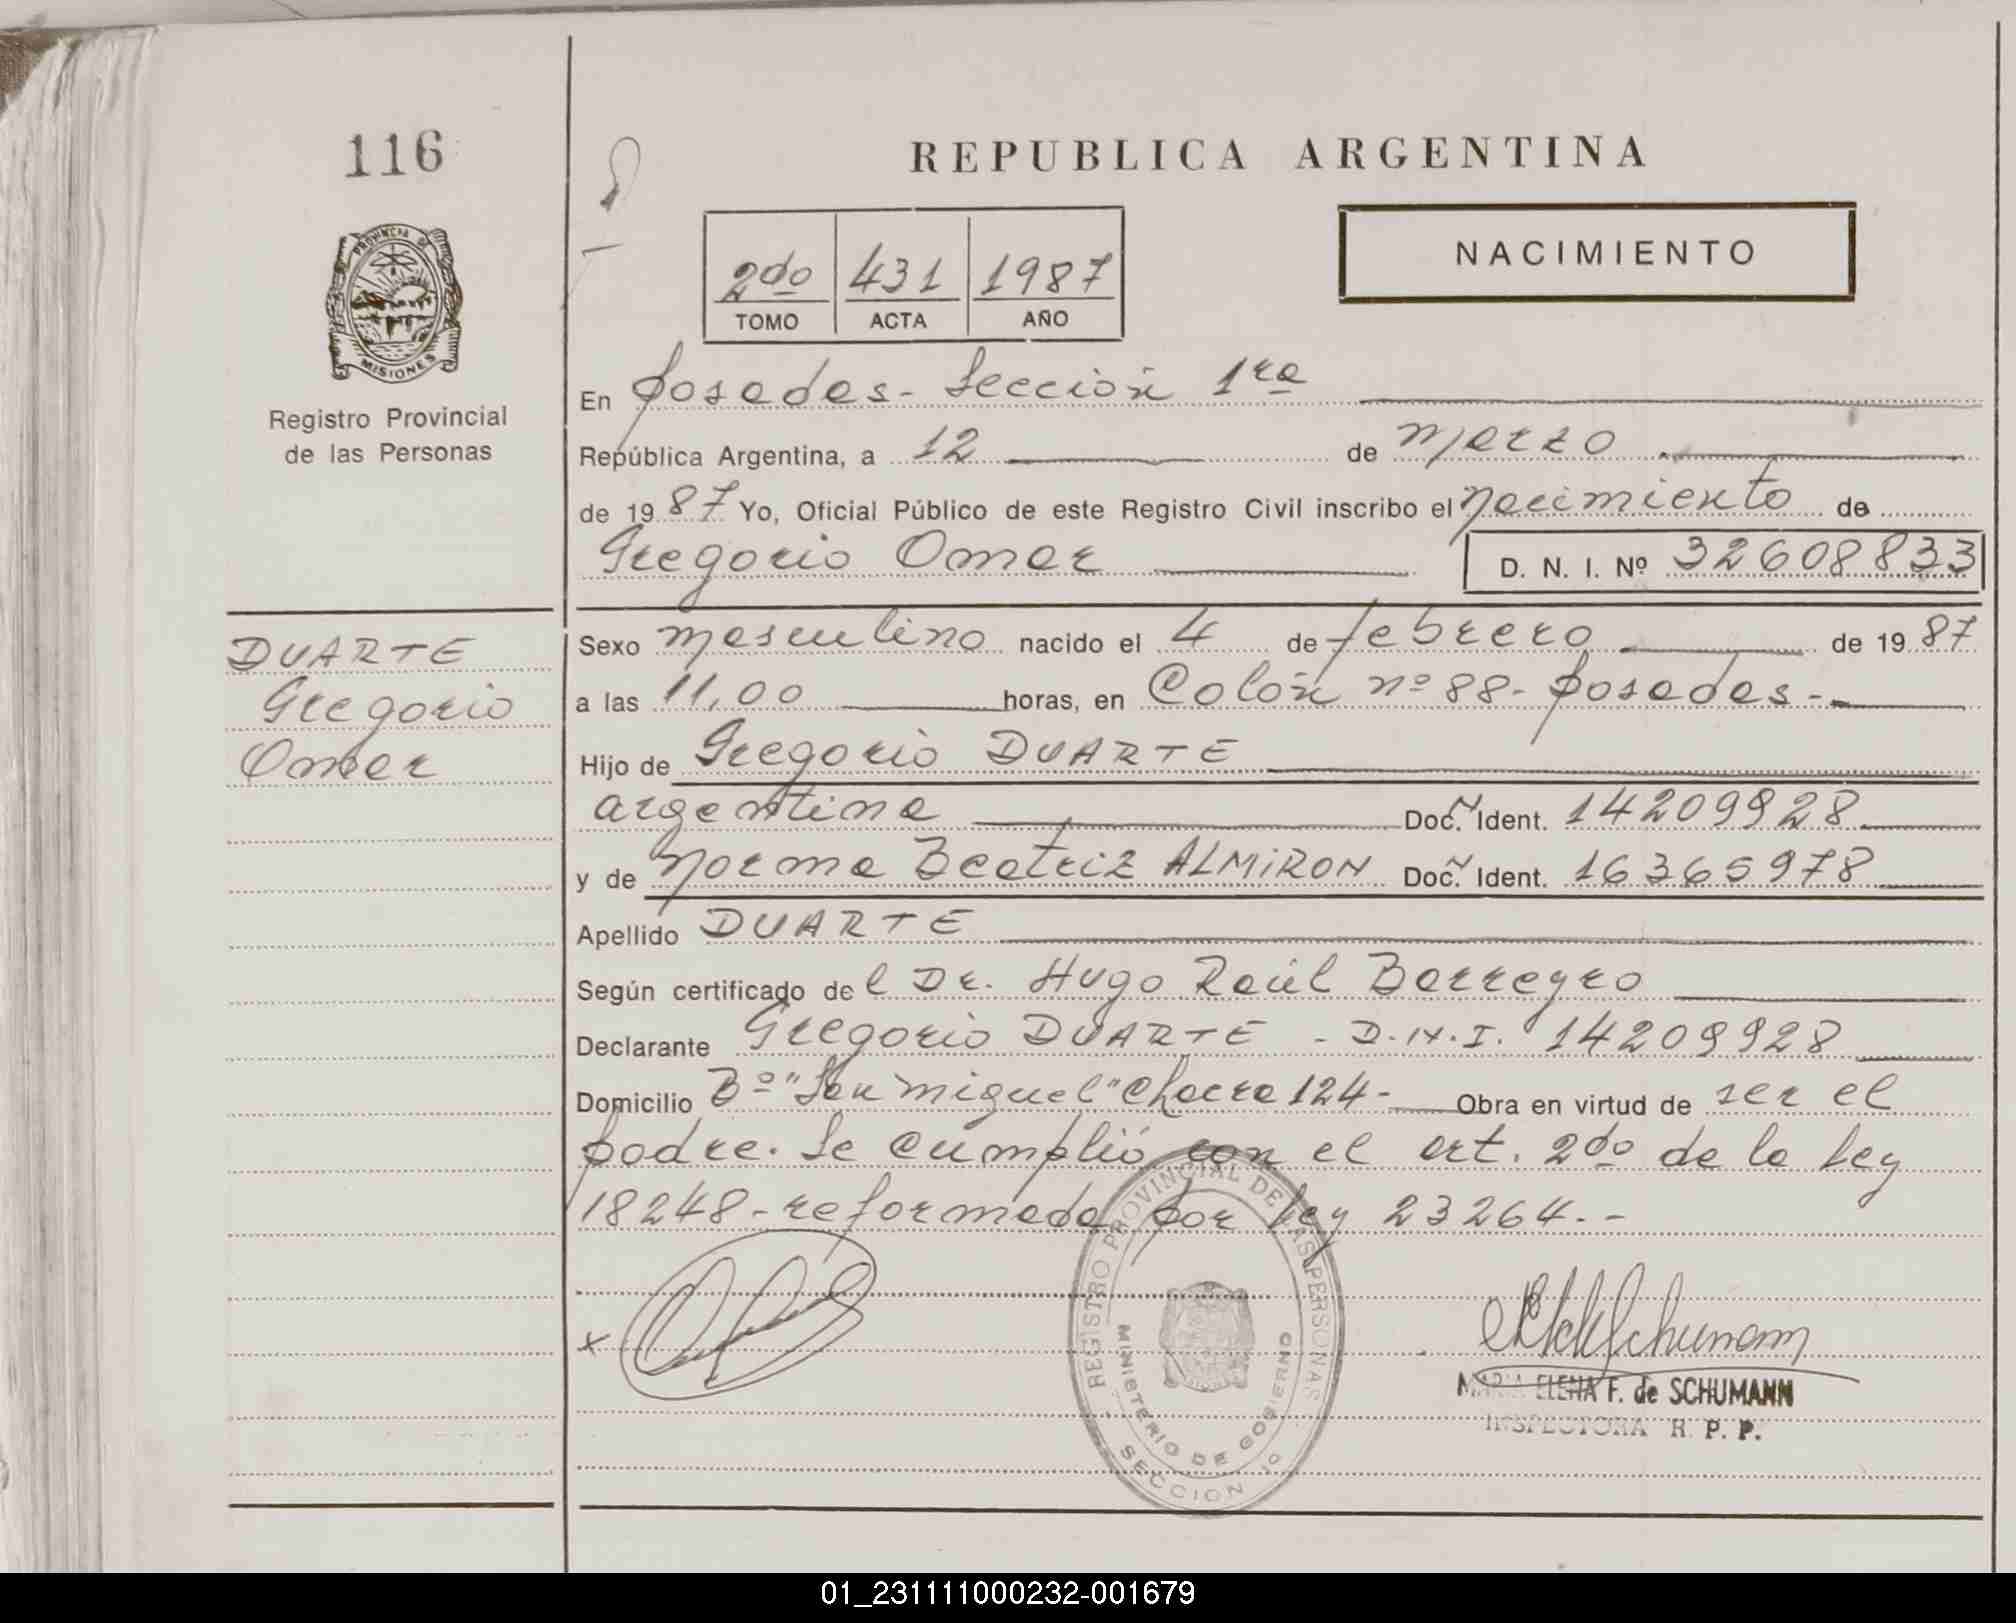 116
REPUBLICA ARGENTINA
PROVINCIA DE
MISIONES
Registro Provincial
de las Personas
2do 431 1987
TOMO ACTA AÑO
NACIMIENTO
En Posadas - Sección 1ra
República Argentina, a 12 de marzo
de 1987 Yo, Oficial Público de este Registro Civil inscribo el nacimiento de
Gregorio Omar D. N. I. Nº 32608833
DUARTE
Gregorio
Omar
Sexo masculino nacido el 4 de febrero de 1987
a las 11,00 horas, en Colón nº 88 - Posadas -
Hijo de Gregorio DUARTE
argentina Doc. N Ident. 14209928
y de Norma Beatriz ALMIRON Doc. N Ident. 16365978
Apellido DUARTE
Según certificado del Dr. Hugo Raúl Barreyro
Declarante Gregorio DUARTE - D.N.I. 14209928
Domicilio Bº "San Miguel" Chacra 124 - Obra en virtud de ser el
padre. Se cumplió con el art. 2do de la Ley
18248 - reformada por Ley 23264. -
x
REGISTRO PROVINCIAL DE LAS PERSONAS
MINISTERIO DE GOBIERNO
SECCION 1º
MARIA ELENA F. de SCHUMANN
INSPECTORA R. P. P.
01_231111000232-001679